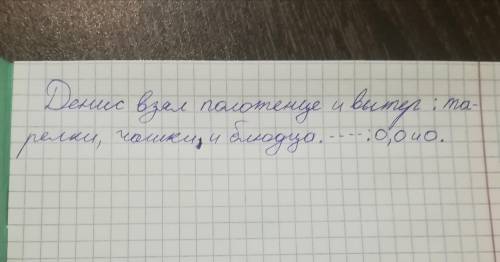 Денис взял полотенце и вытер: та-
релки, чашки, и блюдца. ----:0,0 и 0.